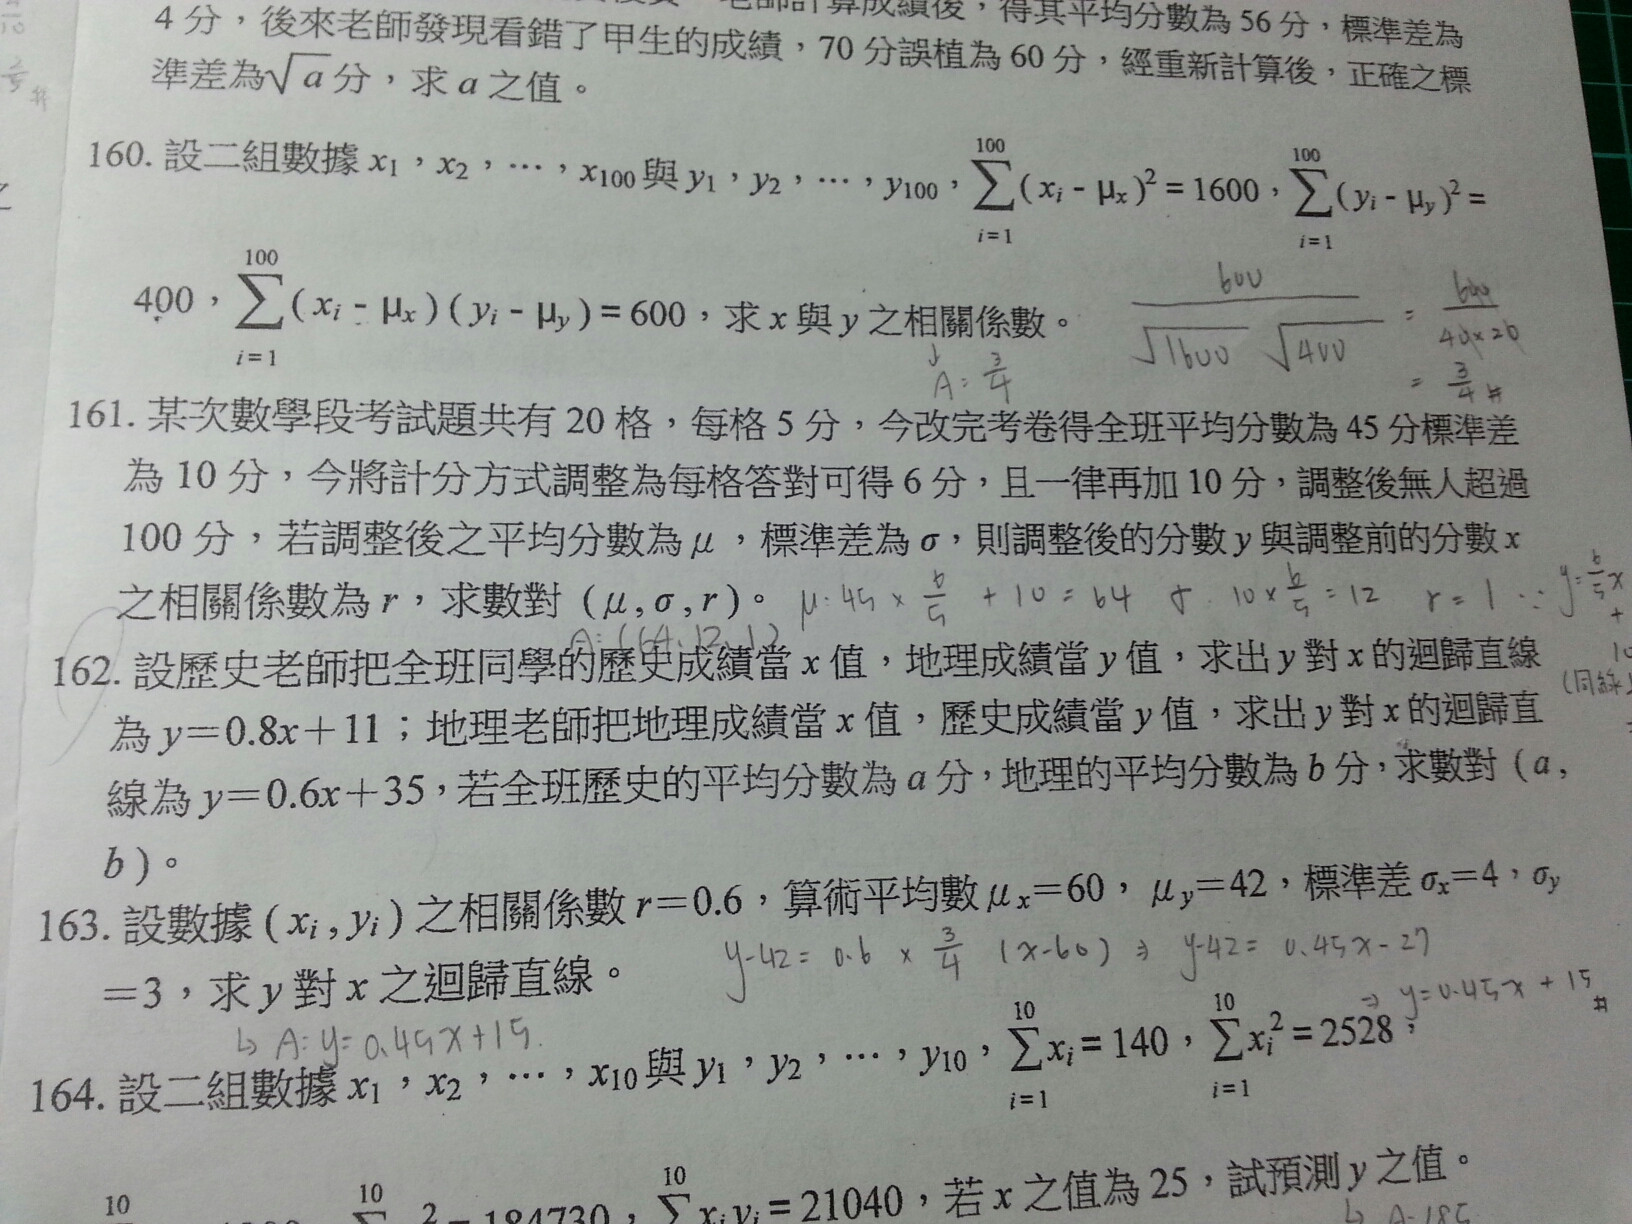 老師計算成績後，得其平均分數為56分，標準差為
4分，後來老師發現看錯了甲生的成績，70分誤植為60分，經重新計算後，正確之標
準差為√a分，求a之值。
160. 設二組數據 x₁，x₂，⋯，x₁₀₀與 y₁，y₂，⋯，y₁₀₀，∑_{i=1}^{100}(xᵢ - μₓ)² = 1600，∑_{i=1}^{100}(yᵢ - μ_y)² =
400，∑_{i=1}^{100}(xᵢ - μₓ)(yᵢ - μ_y) = 600，求 x 與 y 之相關係數。
600 / √1600 √400 = 600 / 40×20
= 3/4 #
A: 3/4
161. 某次數學段考試題共有 20 格，每格 5 分，今改完考卷得全班平均分數為 45 分標準差
為 10 分，今將計分方式調整為每格答對可得 6 分，且一律再加 10 分，調整後無人超過
100 分，若調整後之平均分數為 μ，標準差為 σ，則調整後的分數 y 與調整前的分數 x
之相關係數為 r，求數對 (μ,σ,r)。 μ: 45 × 6/5 + 10 = 64 σ: 10 × 6/5 = 12 r = 1 ∵ y = 6/5 x +
10
A: (64,12,1)
162. 設歷史老師把全班同學的歷史成績當 x 值，地理成績當 y 值，求出 y 對 x 的迴歸直線
為 y＝0.8x＋11；地理老師把地理成績當 x 值，歷史成績當 y 值，求出 y 對 x 的迴歸直
線為 y＝0.6x＋35，若全班歷史的平均分數為 a 分，地理的平均分數為 b 分，求數對 (a,
b)。
163. 設數據 (xᵢ,yᵢ) 之相關係數 r＝0.6，算術平均數 μₓ＝60，μ_y＝42，標準差 σₓ＝4，σ_y
＝3，求 y 對 x 之迴歸直線。
y-42 = 0.6 × 3/4 (x-60) ⇒ y-42 = 0.45x - 27
⇒ y=0.45x + 15 #
↳ A: y=0.45x+15.
164. 設二組數據 x₁，x₂，⋯，x₁₀與 y₁，y₂，⋯，y₁₀，∑_{i=1}^{10}xᵢ = 140，∑_{i=1}^{10}xᵢ² = 2528，
² = 184730，∑^{10} xᵢyᵢ = 21040，若 x 之值為 25，試預測 y 之值。
↳ A: 185